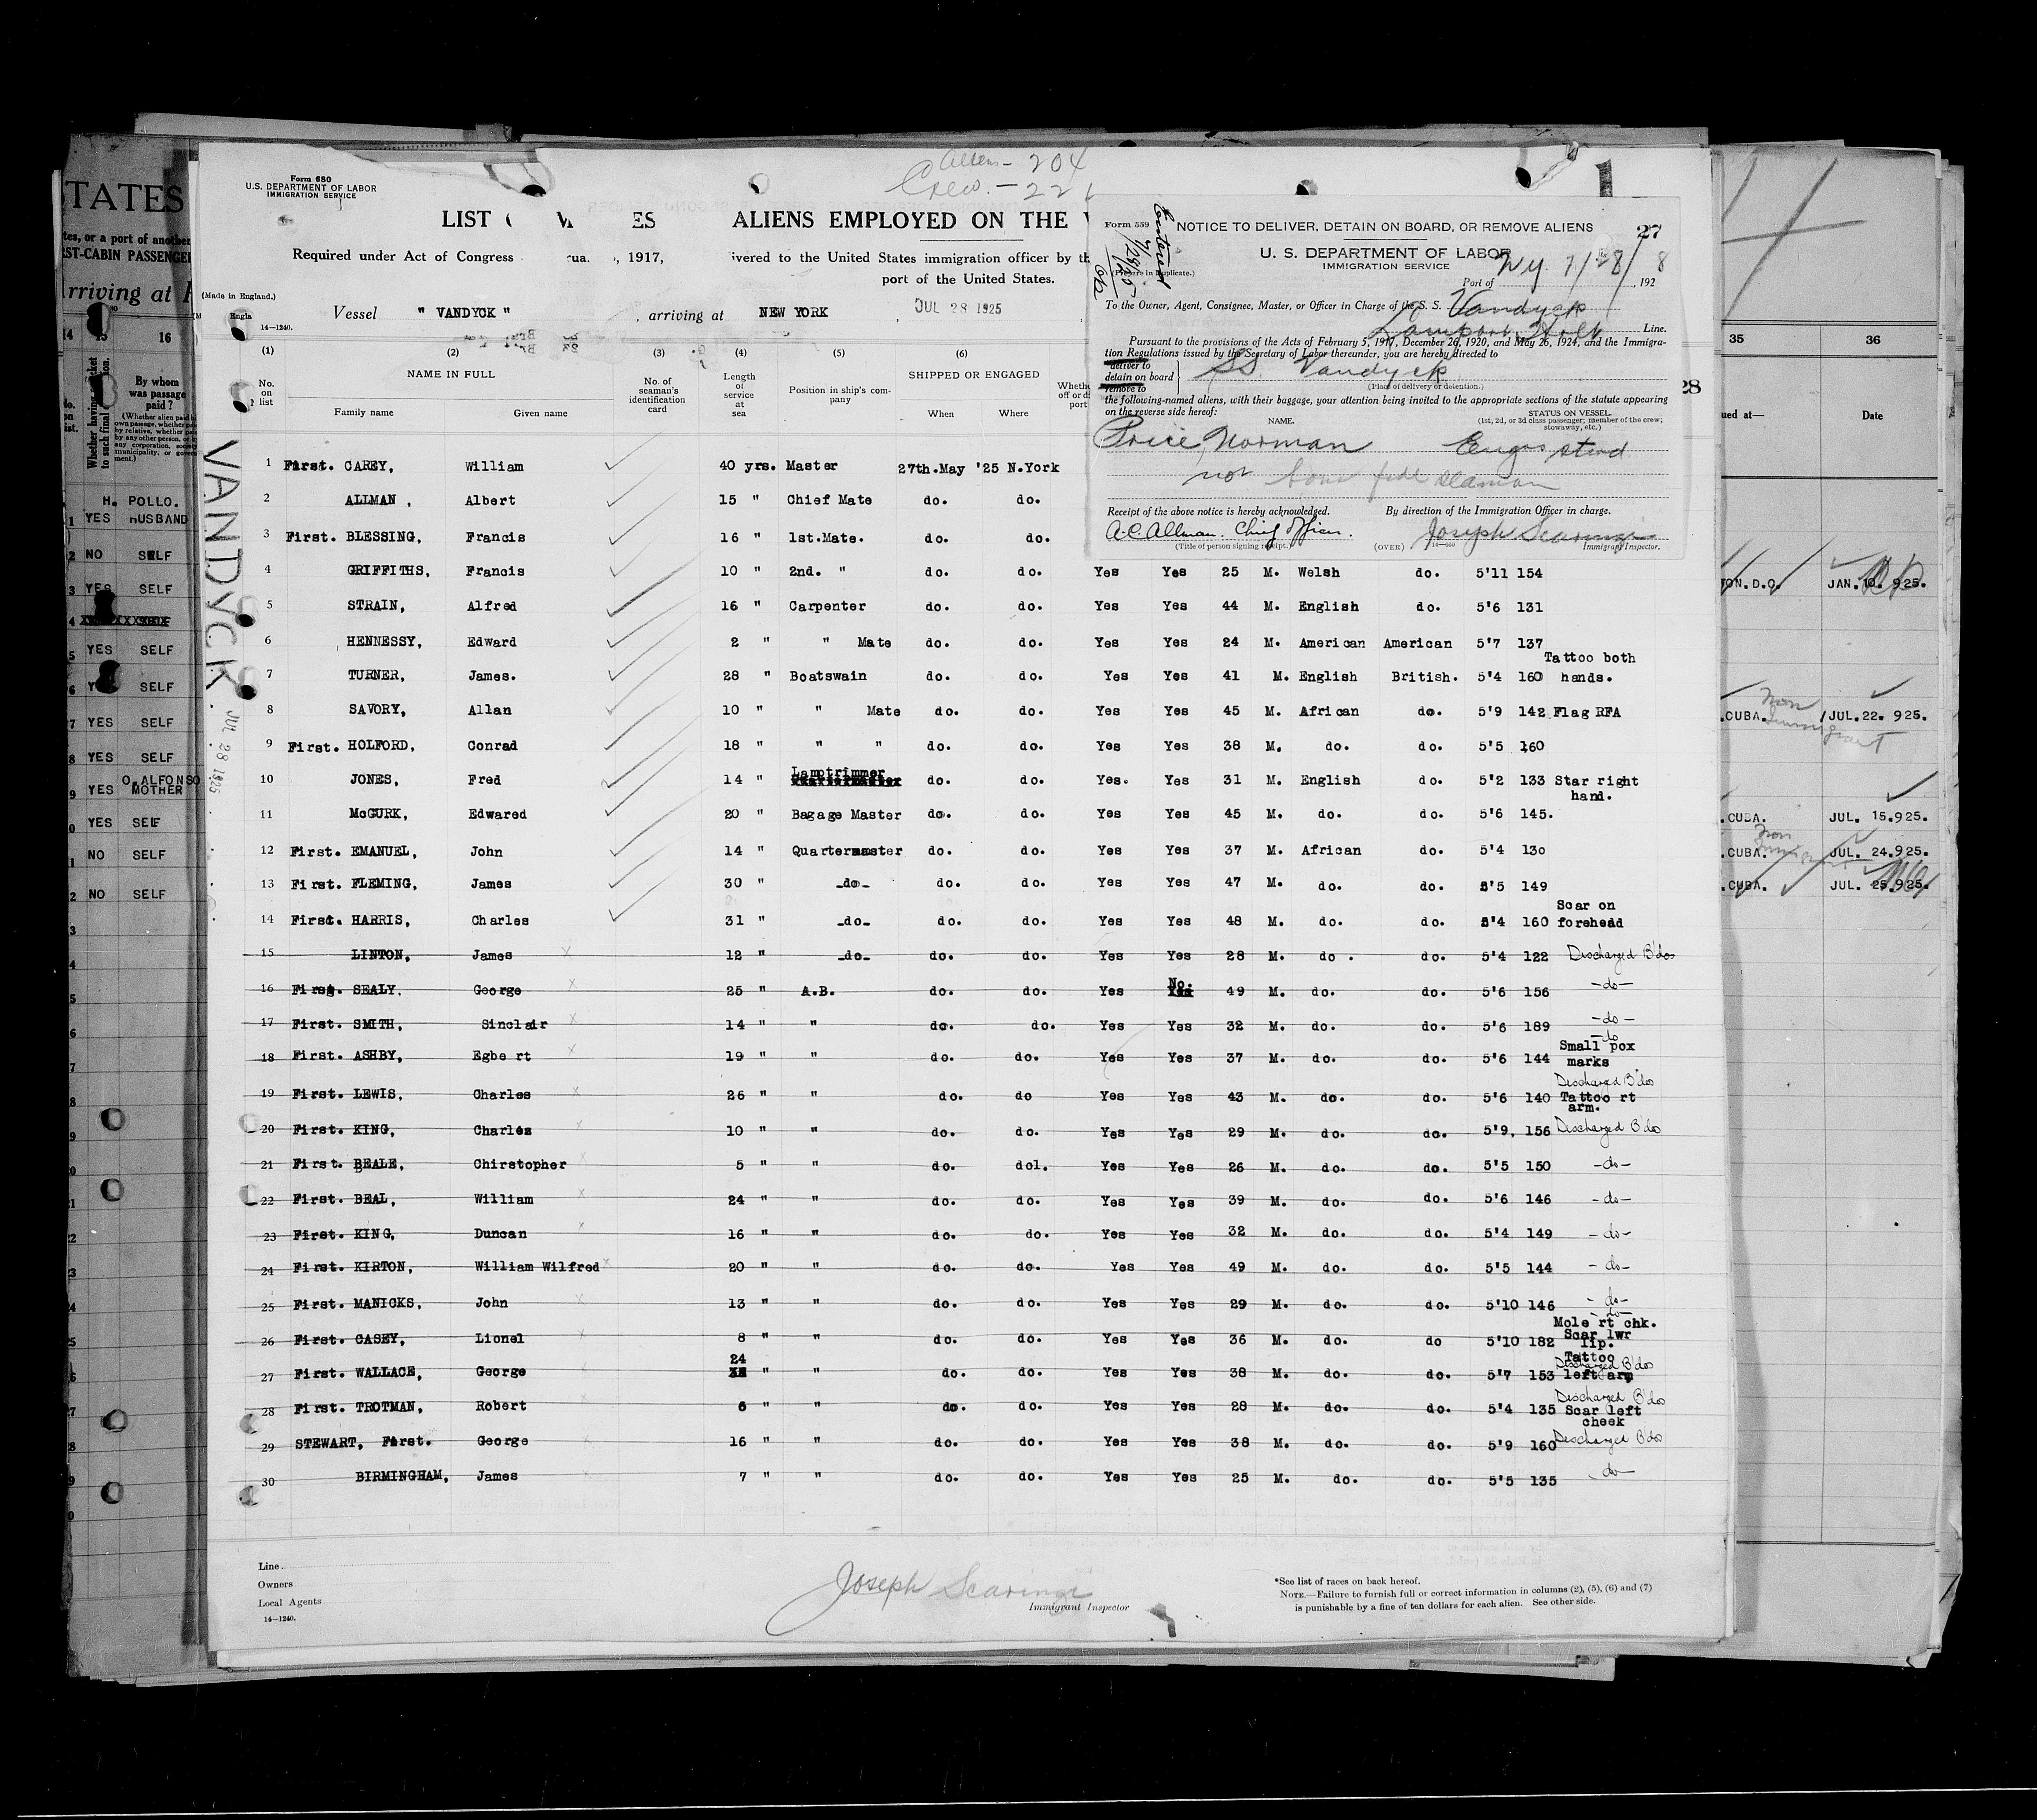 TATES
tes, or a port of another
ST-CABIN PASSENGE
rriving at
14 15 16
By whom was passage paid?
H. POLLO.
1 YES HUSBAND
2 NO SELF
3 YES SELF
4
5 YES SELF
6 SELF
7 YES SELF
8 YES SELF
O. ALFONSO
9 YES MOTHER
0 YES SELF
1 NO SELF
2 NO SELF
VANDYCK.
JUL 28 1925
Aliens - 204
Crew. - 22
Form 680
U.S. DEPARTMENT OF LABOR
IMMIGRATION SERVICE
LIST ES ALIENS EMPLOYED ON THE
Required under Act of Congress rua , 1917, ivered to the United States immigration officer by th
port of the United States.
(Made in England.)
14—1240.
Vessel " VANDYCK " , arriving at NEW YORK JUL 28 1925
(1) (2) (3) (4) (5) (6)
No. on list
NAME IN FULL
Family name Given name
No. of seaman's identification card
Length of service at sea
Position in ship's company
SHIPPED OR ENGAGED
When Where
1 First. CAREY, William 40 yrs. Master 27th.May '25 N.York
2 ALLMAN , Albert 15 " Chief Mate do. do.
3 First. BLESSING, Francis 16 " 1st.Mate. do. do.
4 GRIFFITHS, Francis 10 " 2nd. " do. do. Yes Yes 25 M. Welsh do. 5'11 154
5 STRAIN, Alfred 16 " Carpenter do. do. Yes Yes 44 M. English do. 5'6 131
6 HENNESSY, Edward 2 " " Mate do. do. Yes Yes 24 M. American American 5'7 137
7 TURNER, James. 28 " Boatswain do. do. Yes Yes 41 M. English British. 5'4 160 Tattoo both hands.
8 SAVORY, Allan 10 " " Mate do. do. Yes Yes 45 M. African do. 5'9 142 Flag RFA
9 First. HOLFORD, Conrad 18 " " " do. do. Yes Yes 38 M. do. do. 5'5 160
10 JONES, Fred 14 " Lamptrimmer do. do. Yes. Yes 31 M. English do. 5'2 133 Star right hand.
11 McGURK, Edwared 20 " Bagage Master do. do. Yes Yes 45 M. do. do. 5'6 145.
12 First. EMANUEL, John 14 " Quartermaster do. do. Yes Yes 37 M. African do. 5'4 130
13 First. FLEMING, James 30 " -do- do. do. Yes Yes 47 M. do. do. 5'5 149
14 First. HARRIS, Charles 31 " -do- do. do. Yes Yes 48 M. do. do. 5'4 160 Scar on forehead
15 LINTON, James 12 " -do- do. do. Yes Yes 28 M. do . do. 5'4 122 Discharged B'dos
16 First. SEALY, George 25 " A.B. do. do. Yes No. 49 M. do. do. 5'6 156 -do-
17 First. SMITH, Sinclair 14 " " do. do. Yes Yes 32 M. do. do. 5'6 189 -do-
18 First. ASHBY, Egbe rt 19 " " do. do. Yes Yes 37 M. do. do. 5'6 144 -do Small pox marks
19 First. LEWIS, Charles 26 " " do. do Yes Yes 43 M. do. do. 5'6 140 Discharged B'dos Tattoo rt arm.
20 First. KING, Charles 10 " " do. do. Yes Yes 29 M. do. do. 5'9, 156 Discharged B'dos
21 First. BEALE, Chirstopher 5 " " do. dol. Yes Yes 26 M. do. do. 5'5 150 -do-
22 First. BEAL, William 24 " " do. do. Yes Yes 39 M. do. do. 5'6 146 -do-
23 First. KING, Duncan 16 " " do. do. Yes Yes 32 M. do. do. 5'4 149 -do-
24 First. KIRTON, William Wilfred 20 " " do. do. Yes Yes 49 M. do. do. 5'5 144 -do-
25 First. MANICKS, John 13 " " do. do. Yes Yes 29 M. do. do. 5'10 146 -do-
26 First. CASEY, Lionel 8 " " do. do. Yes Yes 36 M. do. do 5'10 182 -do- Mole rt chk. Scar lwr lip.
27 First. WALLACE, George 24 " " do. do. Yes Yes 38 M. do. do. 5'7 153 Tattoo Discharged B'dos left arm
28 First. TROTMAN, Robert 6 " " do. do. Yes Yes 28 M. do. do. 5'4 135 Discharged B'dos Scar left cheek
29 STEWART, First. George 16 " " do. do. Yes Yes 38 M. do. do. 5'9 160 Discharged B'dos
30 BIRMINGHAM, James 7 " " do. do. Yes Yes 25 M. do. do. 5'5 135 -do-
Line
Owners
Local Agents
14—1240.
Joseph Scaringi
Immigrant Inspector
*See list of races on back hereof.
NOTE.—Failure to furnish full or correct information in columns (2), (5), (6) and (7)
is punishable by a fine of ten dollars for each alien. See other side.
Form 559
NOTICE TO DELIVER, DETAIN ON BOARD, OR REMOVE ALIENS 27
U. S. DEPARTMENT OF LABOR
IMMIGRATION SERVICE
(Prepare in Duplicate.)
Port of N.Y. 7/28/ , 192
To the Owner, Agent, Consignee, Master, or Officer in Charge of the S. S. Vandyck
Lamport Holt Line.
Pursuant to the provisions of the Acts of February 5, 1917, December 26, 1920, and May 26, 1924, and the Immigra-
tion Regulations issued by the Secretary of Labor thereunder, you are hereby directed to
deliver to
detain on board SS Vandyck
remove to (Place of delivery or detention.)
the following-named aliens, with their baggage, your attention being invited to the appropriate sections of the statute appearing
on the reverse side hereof:
NAME. STATUS ON VESSEL
(1st, 2d, or 3d class passenger; member of the crew; stowaway, etc.)
Price, Norman Engrs stwd
not bona fide seaman
Receipt of the above notice is hereby acknowledged. By direction of the Immigration Officer in charge.
A.C. Allman. Chief Officer. Joseph Scaringi
(Title of person signing receipt.) (OVER) Immigrant Inspector.
28
35 36
ued at— Date
ON.D.C. JAN.10. 925.
.CUBA. JUL.22. 925.
Non Immigrant
.CUBA. JUL. 15.925.
.CUBA. JUL. 24.925.
.CUBA. JUL. 25.925.